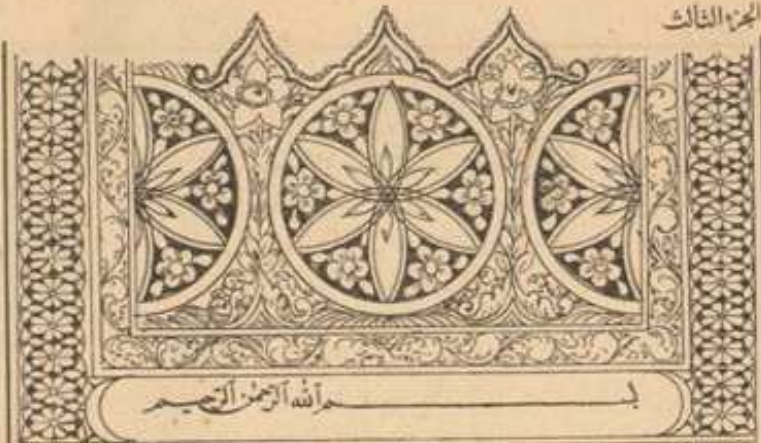 الجزء الثالث
بسم الله الرحمن الرحيم